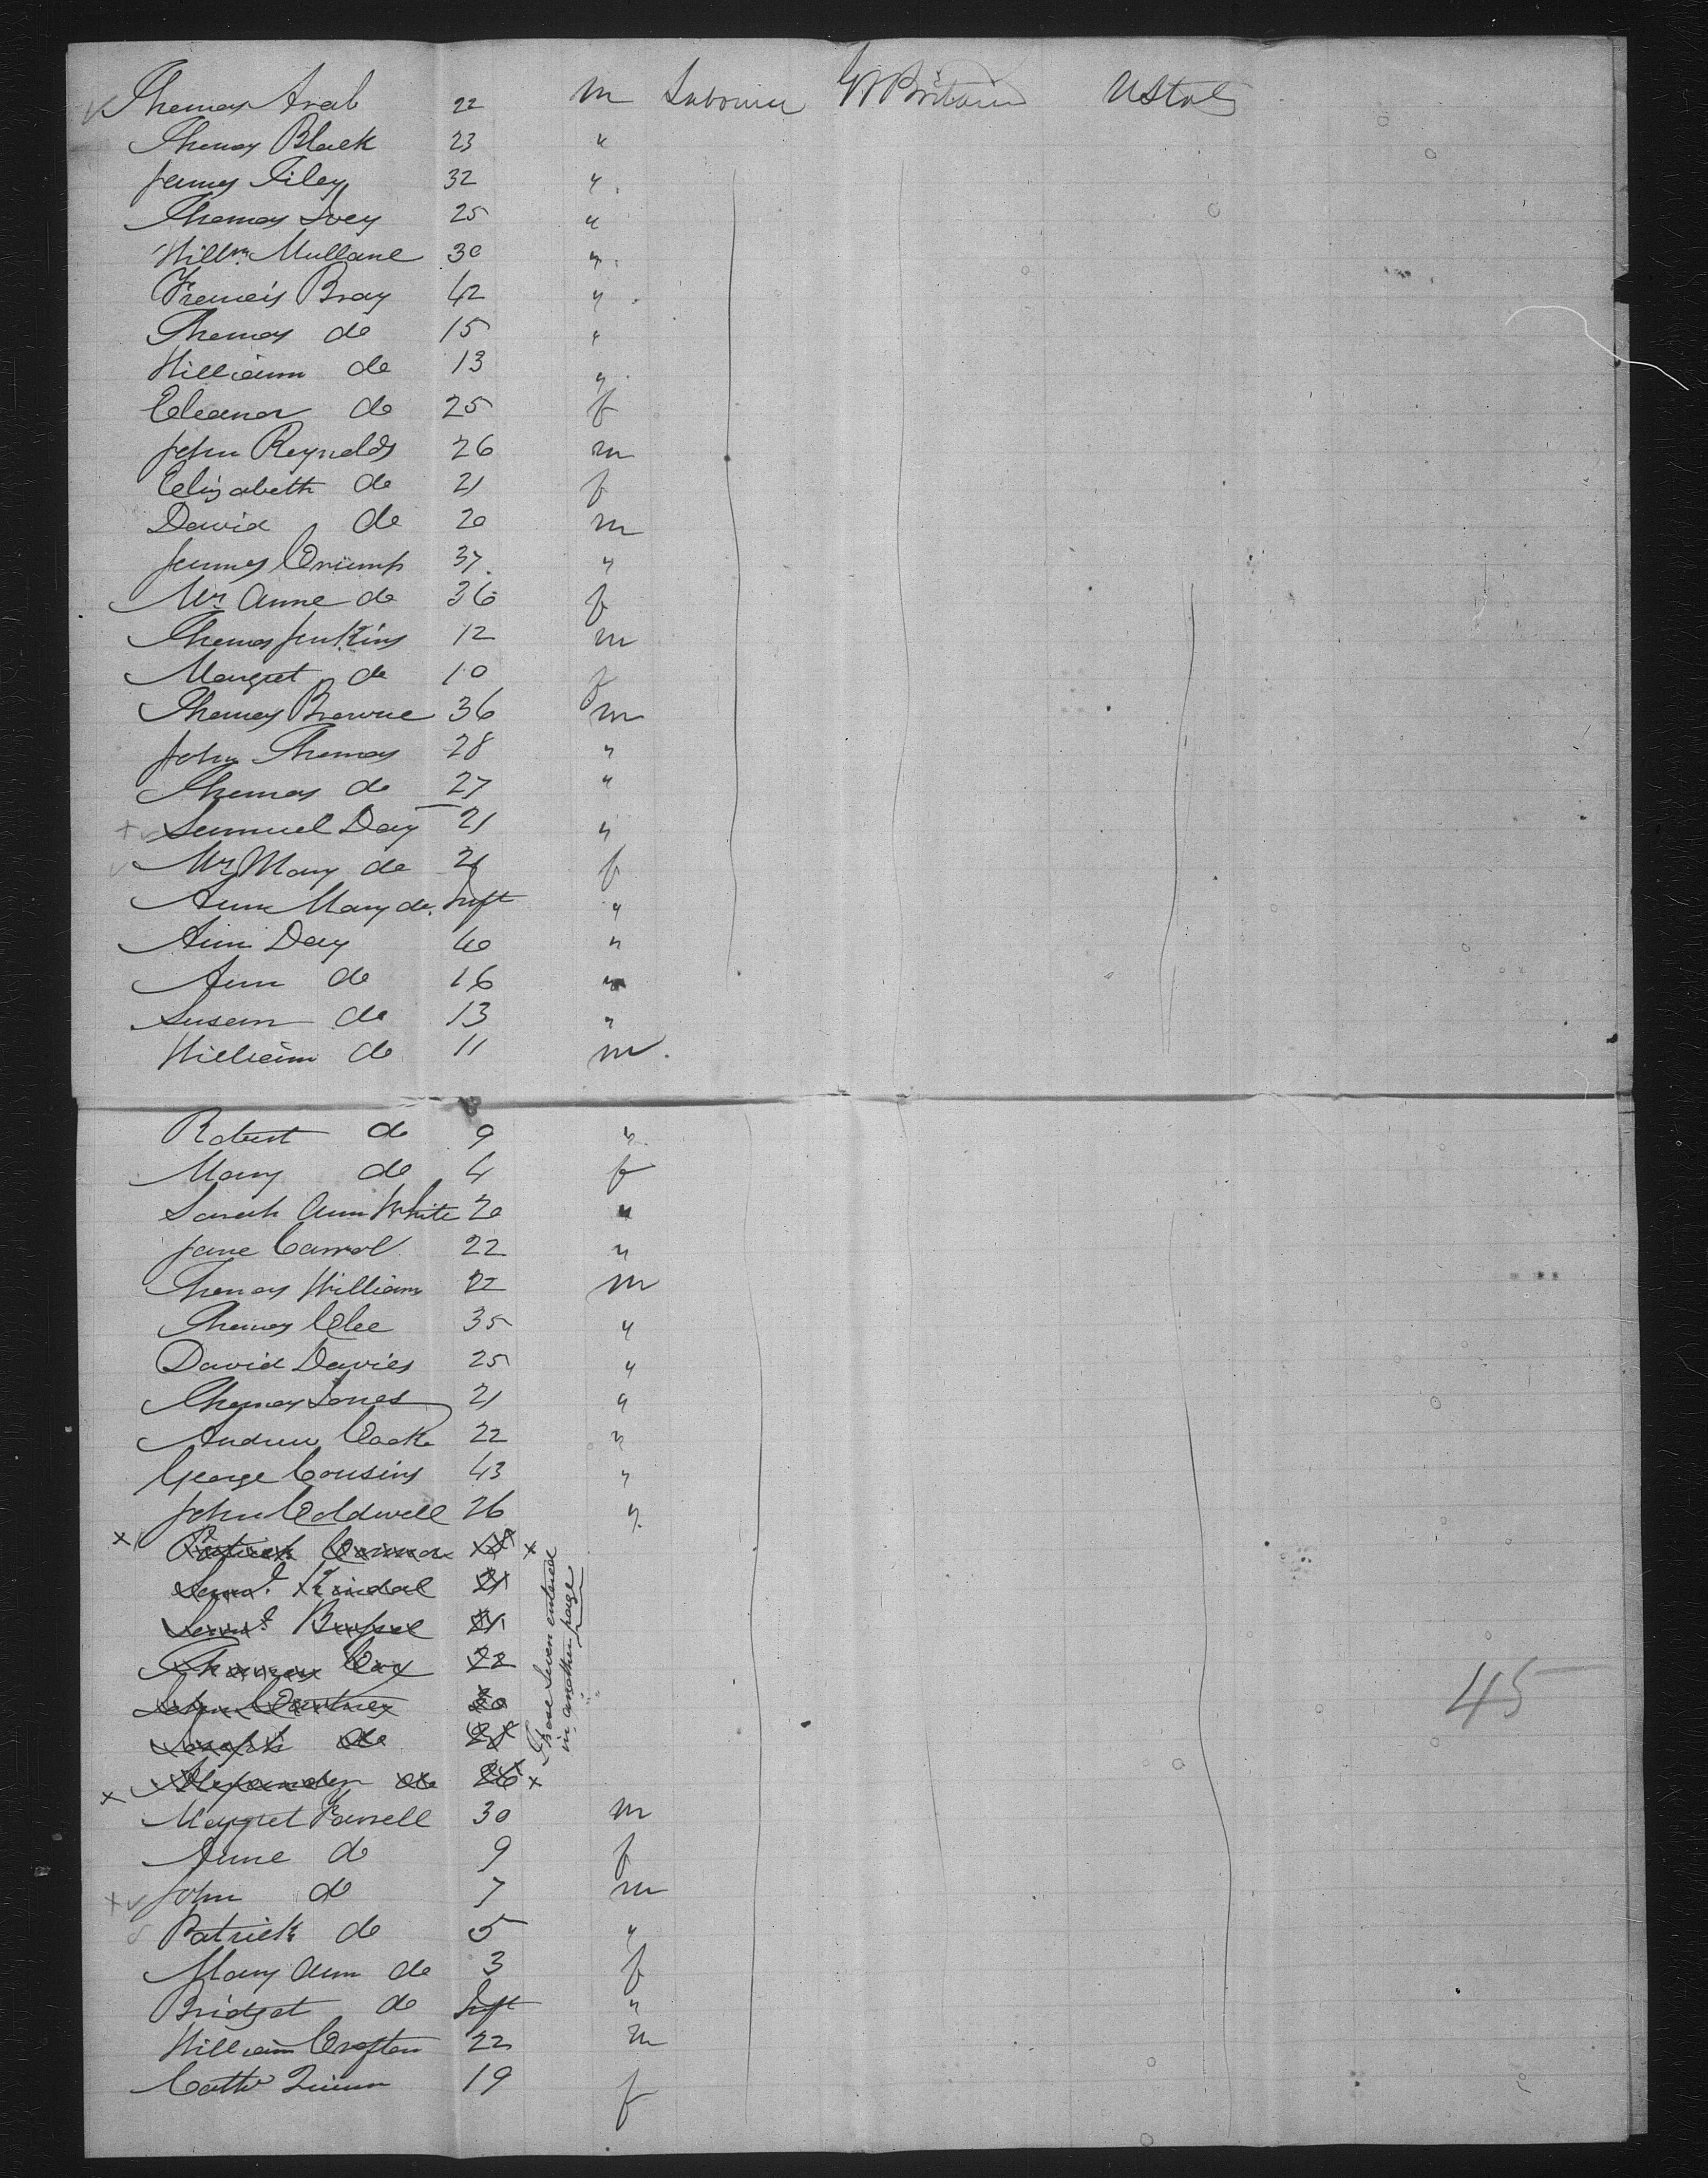 Thomas Arab 22 m Labourer Gt Britain U Stats
Thomas Black 23 "
James Tiley 32 "
Thomas Ivey 25 "
Willm Mullane 30 "
Francis Bray 42 "
Thomas do 15 "
William do 13 "
Eleanor do 25 f
John Reynolds 26 m
Elizabeth do 21 f
David do 20 m
James Crump 37 "
Mrs Anne do 36 f
Thomas Jenkins 12 m
Margret do 10 f
Thomas Browne 36 m
John Thomas 28 "
Thomas do 27 "
Samuel Day 21 "
Mrs Mary do 21 f
Ann Mary do Inft "
Ann Day 40 "
Ann do 16 "
Susan do 13 "
William do 11 m
Robert do 9 "
Mary do 4 f
Sarah Ann White 20 "
Jane Carrol 22 "
Thomas William 22 m
Thomas Clee 35 "
David Davies 25 "
Thomas Jones 21 "
Andrew Cook 22 "
George Cousins 43 "
John Coldwell 26 "
x Patrick Connor x
Saml Kindal 21
Saml 21
Thomas Cox 22
John Courtney 20
Joseph do
x Alexander do 26 x
These Seven entered
in another page
45
Margret Farrell 30 m
Anne do 9 f
John do 7 m
Patrick do 5 "
Mary Ann do 3 f
Bridget do Inft "
William Crofton 22 m
Cathe Quinn 19 f